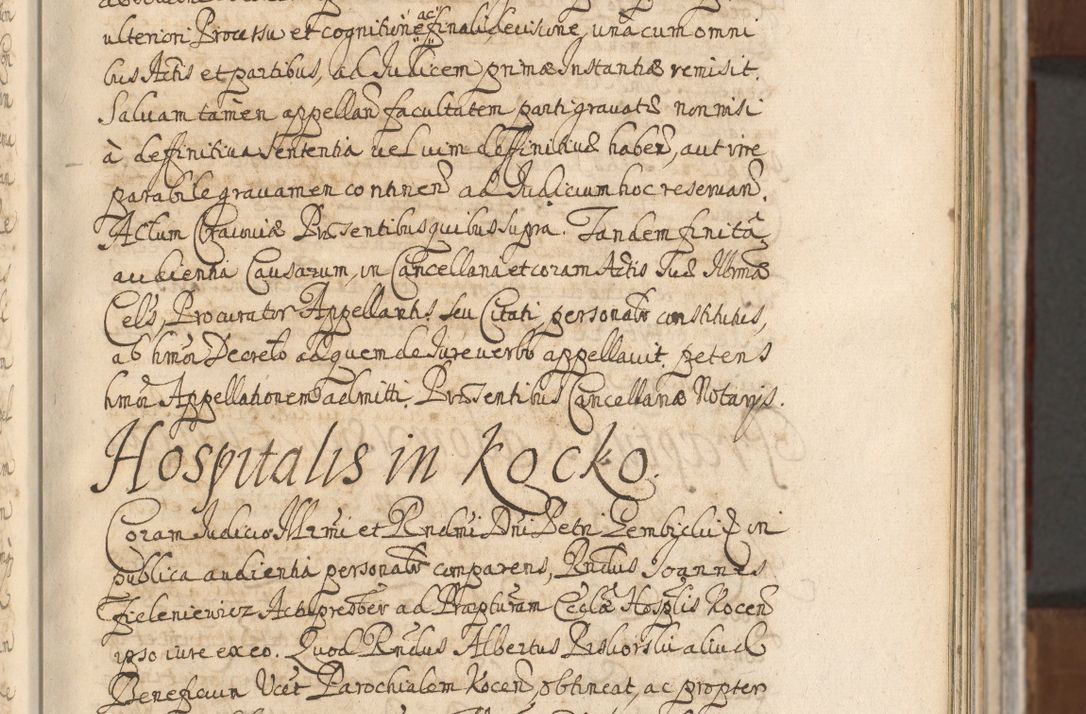 ulteriori Processu et cognitione ac finali decisione, unâ cum omni
bus Actis et partibus, ad Judicem primæ Instantiæ remisit.
Salvam tamen appellan facultatem parti gravatæ non nisi
à deffinitiva Sententia vel vim deffinitivæ haben, aut irre
parabile gravamen continen ad Judicium hoc reservan.
Actum Cracoviæ Præsentibus quibus supra. Tandem finitâ
audientia Causarum, in Cancellaria et coram Actis Suæ Illrmæ
Cels, Procurator Appellantis seu Citati, personalr constitutis,
ab hmoi Decreto ad quem de Jure verbo appellavit, petens
hmoi Appellationem admitti. Præsentibus Cancellariæ Notarys.
Hospitalis in Kocko.
Coram Judicio Illrmi et Rndmi Dni Petri Gembiclui &c in
publica audientia personalr comparens, Rndus Joannes
Zieleniewicz Actus presber ad Præpturam Ecclæ Hosplis Kocen
ipso iure ex eo. Quod Rndus Albertus aliud
Beneficium Vcet Parochialem Kocen, obtineat, ac propter